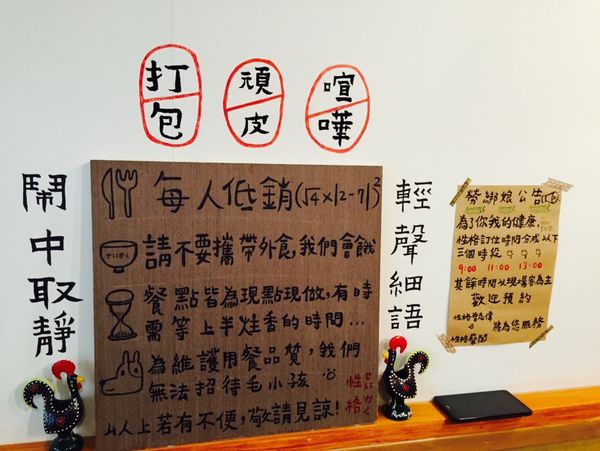 打包
頑皮
喧嘩
鬧中取靜
每人低銷(√4×|2-7|)²
請不要攜帶外食,我們會餓
せいかく
餐點皆為現點現做,有時
需等上半炷香的時間...
為維護用餐品質,我們
無法招待毛小孩
以上若有不便,敬請見諒!
性格
せいかく
輕聲細語
勞綁娘公告
為了你我的健康,
性格訂位時間分成以下
三個時段
9:00 11:00 13:00
其餘時間以現場客為主
歡迎預約
將為您服務